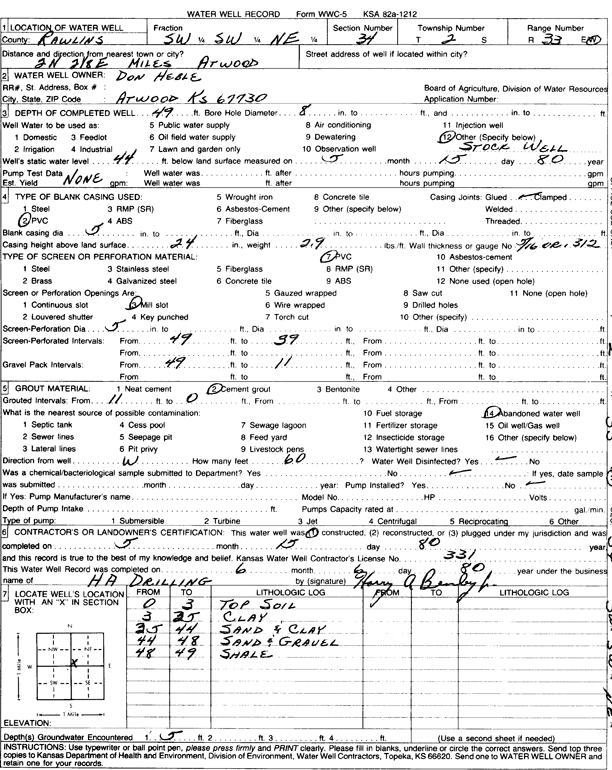 WATER WELL RECORD Form WWC-5 KSA 82a-1212
1 LOCATION OF WATER WELL Fraction Section Number Township Number Range Number
County: RAWLINS SW ¼ SW ¼ NE ¼ 34 T 2 S R 33 E/W
Distance and direction from nearest town or city? Street address of well if located within city?
2N 2/8E MILES ATWOOD
2 WATER WELL OWNER: DON HEBLE
RR#, St. Address, Box # : Board of Agriculture, Division of Water Resources
City, State, ZIP Code : ATWOOD KS 67730 Application Number:
3 DEPTH OF COMPLETED WELL 49 ft. Bore Hole Diameter 8 in. to ft., and in. to ft.
Well Water to be used as: 5 Public water supply 8 Air conditioning 11 Injection well
1 Domestic 3 Feedlot 6 Oil field water supply 9 Dewatering 12 Other (Specify below)
2 Irrigation 4 Industrial 7 Lawn and garden only 10 Observation well STOCK WELL
Well's static water level 44 ft. below land surface measured on 5 month 15 day 80 year
Pump Test Data NONE : Well water was ft. after hours pumping gpm
Est. Yield gpm: Well water was ft. after hours pumping gpm
4 TYPE OF BLANK CASING USED: 5 Wrought iron 8 Concrete tile Casing Joints: Glued Clamped
1 Steel 3 RMP (SR) 6 Asbestos-Cement 9 Other (specify below) Welded
2 PVC 4 ABS 7 Fiberglass Threaded
Blank casing dia 5 in. to ft., Dia in. to ft., Dia in. to ft.
Casing height above land surface 24 in., weight 2.9 lbs./ft. Wall thickness or gauge No 5/16 OR .312
TYPE OF SCREEN OR PERFORATION MATERIAL: 7 PVC 10 Asbestos-cement
1 Steel 3 Stainless steel 5 Fiberglass 8 RMP (SR) 11 Other (specify)
2 Brass 4 Galvanized steel 6 Concrete tile 9 ABS 12 None used (open hole)
Screen or Perforation Openings Are: 5 Gauzed wrapped 8 Saw cut 11 None (open hole)
1 Continuous slot 3 Mill slot 6 Wire wrapped 9 Drilled holes
2 Louvered shutter 4 Key punched 7 Torch cut 10 Other (specify)
Screen-Perforation Dia 5 in. to ft., Dia in. to ft., Dia in. to ft.
Screen-Perforated Intervals: From 49 ft. to 39 ft., From ft. to ft.
From ft. to ft., From ft. to ft.
Gravel Pack Intervals: From 49 ft. to 11 ft., From ft. to ft.
From ft. to ft., From ft. to ft.
5 GROUT MATERIAL: 1 Neat cement 2 Cement grout 3 Bentonite 4 Other
Grouted Intervals: From 11 ft. to 0 ft., From ft. to ft., From ft. to ft.
What is the nearest source of possible contamination: 10 Fuel storage 14 Abandoned water well
1 Septic tank 4 Cess pool 7 Sewage lagoon 11 Fertilizer storage 15 Oil well/Gas well
2 Sewer lines 5 Seepage pit 8 Feed yard 12 Insecticide storage 16 Other (specify below)
3 Lateral lines 6 Pit privy 9 Livestock pens 13 Watertight sewer lines
Direction from well W How many feet 60 ? Water Well Disinfected? Yes No
Was a chemical/bacteriological sample submitted to Department? Yes No If yes, date sample
was submitted month day year: Pump Installed? Yes No
If Yes: Pump Manufacturer's name Model No. HP Volts
Depth of Pump Intake ft. Pumps Capacity rated at gal./min.
Type of pump: 1 Submersible 2 Turbine 3 Jet 4 Centrifugal 5 Reciprocating 6 Other
6 CONTRACTOR'S OR LANDOWNER'S CERTIFICATION: This water well was (1) constructed, (2) reconstructed, or (3) plugged under my jurisdiction and was
completed on 5 month 15 day 80 year
and this record is true to the best of my knowledge and belief. Kansas Water Well Contractor's License No. 331
This Water Well Record was completed on 6 month 6 day 80 year under the business
name of HA DRILLING by (signature)
7 LOCATE WELL'S LOCATION WITH AN "X" IN SECTION BOX:
FROM TO LITHOLOGIC LOG FROM TO LITHOLOGIC LOG
0 3 TOP SOIL
3 35 CLAY
35 44 SAND & CLAY
44 48 SAND & GRAVEL
48 49 SHALE
N
NW NE
W X E
SW SE
S
1 Mile
1 Mile
ELEVATION:
Depth(s) Groundwater Encountered 1. 5 ft. 2 ft. 3 ft. 4 ft. (Use a second sheet if needed)
INSTRUCTIONS: Use typewriter or ball point pen, please press firmly and PRINT clearly. Please fill in blanks, underline or circle the correct answers. Send top three
copies to Kansas Department of Health and Environment, Division of Environment, Water Well Contractors, Topeka, KS 66620. Send one to WATER WELL OWNER and
retain one for your records.